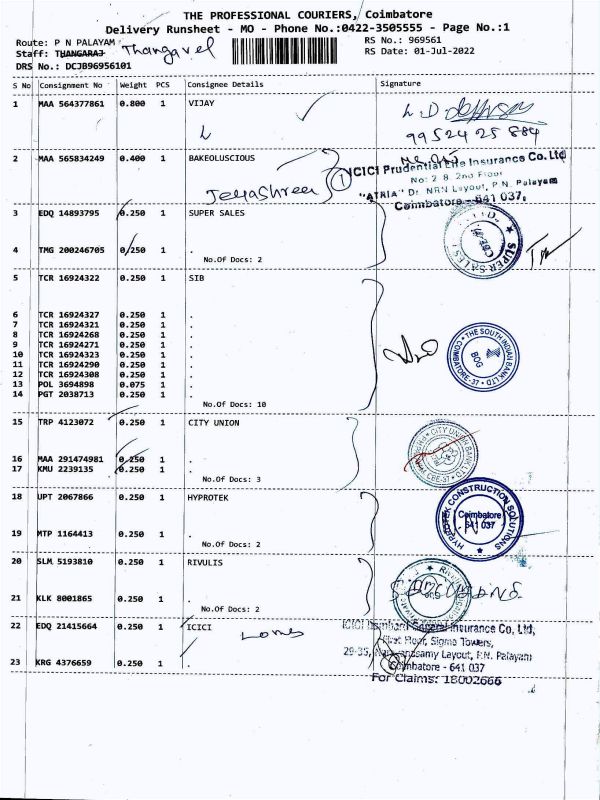 THE PROFESSIONAL COURIERS, Coimbatore
Delivery Runsheet - MO - Phone No.:0422-3505555 - Page No.:1
Route: P N PALAYAM
RS No.: 969561
Staff: THANGARAJ Thangavel
RS Date: 01-Jul-2022
DRS No.: DCJB96956101
S No Consignment No Weight PCS Consignee Details Signature
1 MAA 564377861 0.800 1 VIJAY
99524 25 884
2 MAA 565834249 0.400 1 BAKEOLUSCIOUS
Jeyashree
1 ICICI Prudential Life Insurance Co. Ltd
No: 2 8, 2nd Floor
"ATRIA" Dr. NRN Layout, P.N. Palayam
Coimbatore - 641 037.
3 EDQ 14893795 0.250 1 SUPER SALES
4 TMG 200246705 0/250 1 .
No.Of Docs: 2
SUPER SALES
5 TCR 16924322 0.250 1 SIB
6 TCR 16924327 0.250 1 .
7 TCR 16924321 0.250 1 .
8 TCR 16924268 0.250 1 .
9 TCR 16924271 0.250 1 .
10 TCR 16924323 0.250 1 .
11 TCR 16924290 0.250 1 .
12 TCR 16924308 0.250 1 .
13 POL 3694898 0.075 1 .
14 PGT 2038713 0.250 1 .
No.Of Docs: 10
THE SOUTH INDIAN BANK LTD
COIMBATORE-37
BOG
15 TRP 4123072 0.250 1 CITY UNION
16 MAA 291474981 0.250 1 .
17 KMU 2239135 0.250 1 .
No.Of Docs: 3
CITY UNION BANK LTD
CBE-37
18 UPT 2067866 0.250 1 HYPROTEK
19 MTP 1164413 0.250 1 .
No.Of Docs: 2
HYPROTEK CONSTRUCTION SOLUTIONS
Coimbatore
641 037
20 SLM 5193810 0.250 1 RIVULIS
21 KLK 8001865 0.250 1 .
No.Of Docs: 2
22 EDQ 21415664 0.250 1 ICICI
23 KRG 4376659 0.250 1 .
ICICI Lombard General Insurance Co. Ltd,
First Floor, Sigma Towers,
29-35, Layout, P.N. Palayam
Coimbatore - 641 037
For Claims: 18002666